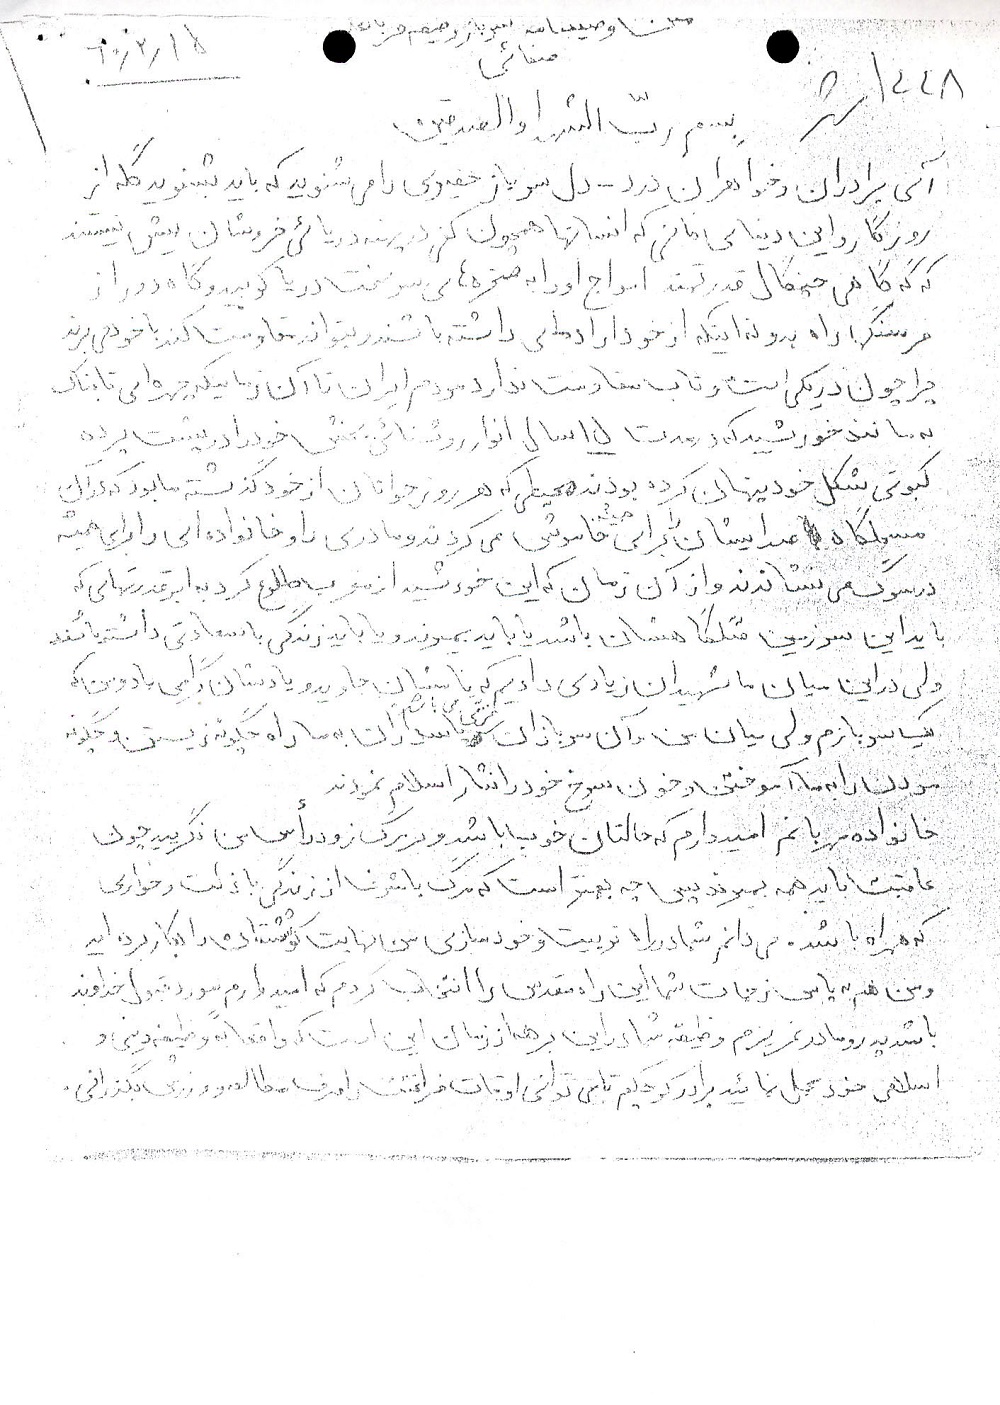 متن وصیتنامه سرباز وظیفه
صفائی
۶۰/۲/۱۵
۱۴۴۸
بسم ربّ الشهدا و الصدیقین
آی برادران و خواهران درد - دل سربازی را می شنوید که باید بشنوید گله از
روزگار و این دنیای فانی که انسانها همچون در پهنه دریائی خروشان بیش نیستند
که گه گاهی چنگال قدرتمند امواج او را به صخره های سخت دریا کوبید و گاه دور از
فرسنگها راه بدون اینکه از خود اراده ای داشته باشند و بتواند مقاومت کند با خود می برند
چرا چون در یکی است و تاب مقاومت ندارد مردم ایران تا آن زمانیکه چهره ای تابناک
به مانند خورشید که در مدت ۱۵ سال انوار روشنائی بخش خود را در پشت پرده
کبوتی شکل خود پنهان کرده بودند محیطی که هر روز جوانان از خود گذشته ما بود که در آن
صدایشان برای همیشه خاموش می کردند و مادری را و خانواده ای را برای همیشه
در سوگ می نشاندند و از آن زمان که این خورشید از مغرب طلوع کرد به ابرقدرتهایی که
باید این سرزمین قتلگاهشان باشد یا باید بمیرند و یا باید زندگی با سعادتی داشته باشند
ولی در این میان ما شهیدان زیادی دادیم که یادشان جاوید و یادشان گرامی باد و من که
یک سربازم ولی میان من و آن سربازان و پاسداران فرقی می باشد به ما راه چگونه زیستن و چگونه
مردن را به ما آموختن و خون سرخ خود را نثار اسلام نمودند
خانواده مهربانم امیدوارم که حالتان خوب باشد و در مرگ زودرأس من نگریید چون
عاقبت باید همه بمیرند پس چه بهتر است که مرگ با شرف از زندگی با ذلت و خواری
که همراه باشد. می دانم شما در راه تربیت و خودسازی من نهایت کوشش تان را بکار برده اید
و من هم به پاس زحمات شما این راه مقدس را انتخاب کردم که امیدوارم مورد قبول خداوند
باشد پدر و مادر عزیزم وظیفه شما در این برهه از زمان این است که واقعا به وظیفه دینی و
اسلامی خود عمل نمائید برادر کوچکم تا می توانی اوقات فراغتت را صرف مطالعه و ورزش بگذرانی.